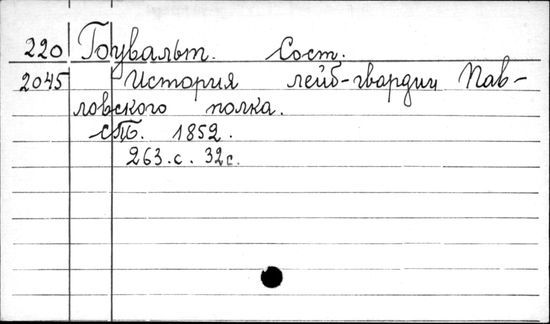 220 Гоувальт. Сост.
2045 История лейб-гвардии Пав-
ловского полка.
СПБ. 1852.
263.с. 32с.